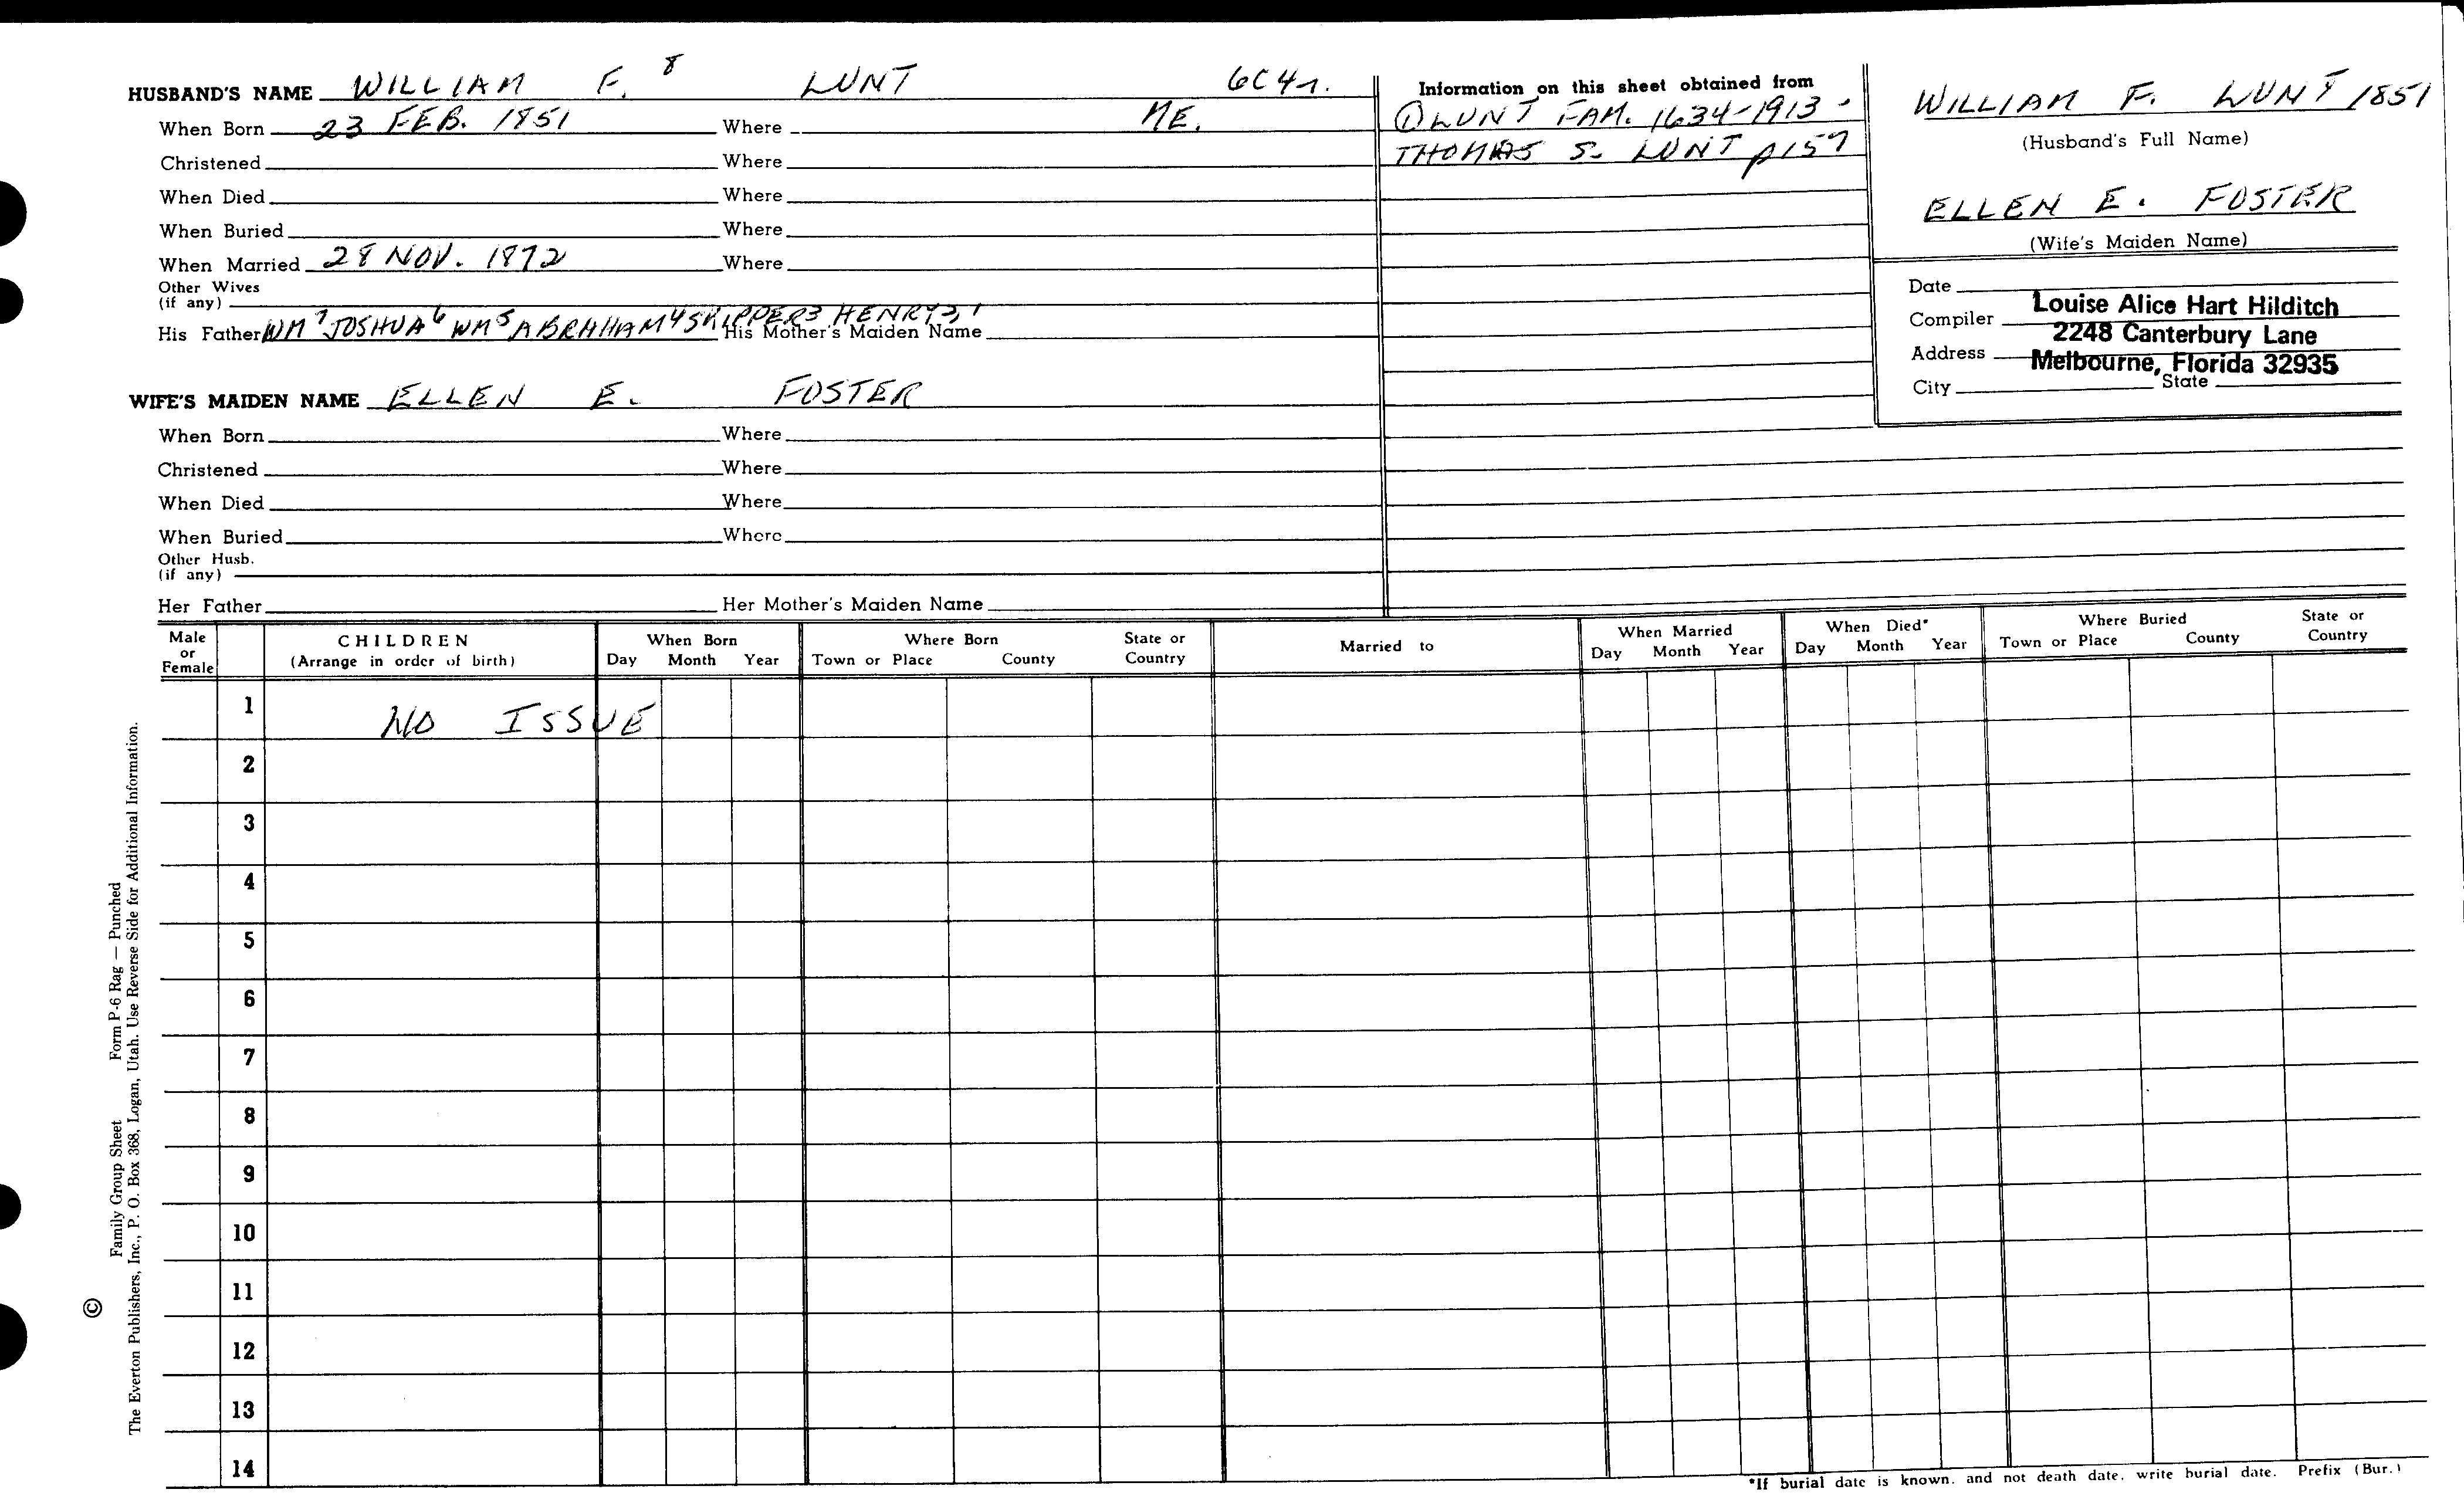 HUSBAND'S NAME WILLIAM F. 8 LUNT 6C4r.
When Born 23 FEB. 1851 Where ME.
Christened Where
When Died Where
When Buried Where
When Married 28 NOV. 1872 Where
Other Wives
(if any)
His Father WM 7 JOSHUA 6 WM 5 ABRAHAM 4 SKIPPER 3 HENRY 2, 1 His Mother's Maiden Name
WIFE'S MAIDEN NAME ELLEN E. FOSTER
When Born Where
Christened Where
When Died Where
When Buried Where
Other Husb.
(if any)
Her Father Her Mother's Maiden Name
Information on this sheet obtained from
① LUNT FAM. 1634-1913 -
THOMAS S. LUNT p157
WILLIAM F. LUNT 1851
(Husband's Full Name)
ELLEN E. FOSTER
(Wife's Maiden Name)
Date
Compiler Louise Alice Hart Hilditch
Address 2248 Canterbury Lane
City Melbourne, Florida 32935 State
Male or Female
CHILDREN
(Arrange in order of birth)
When Born
Day Month Year
Where Born
Town or Place County State or Country
Married to
When Married
Day Month Year
When Died*
Day Month Year
Where Buried
Town or Place County State or Country
1 NO ISSUE
2
3
4
5
6
7
8
9
10
11
12
13
14
*If burial date is known, and not death date, write burial date. Prefix (Bur.)
© Family Group Sheet Form P-6 Rag — Punched
The Everton Publishers, Inc., P. O. Box 368, Logan, Utah. Use Reverse Side for Additional Information.